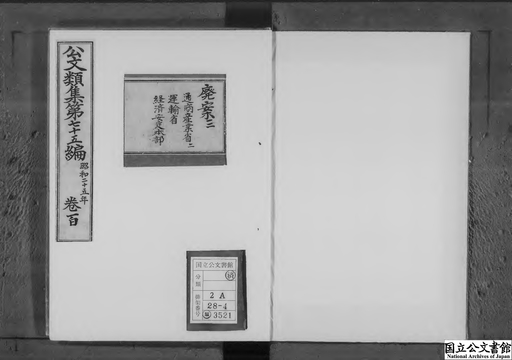 公文類集第七十五編 昭和二十五年 巻百
廃案三
通商産業省二
運輸省
経済安定本部
国立公文書館
分類
排架番号
2A
28-4
3521
国立公文書館
National Archives of Japan